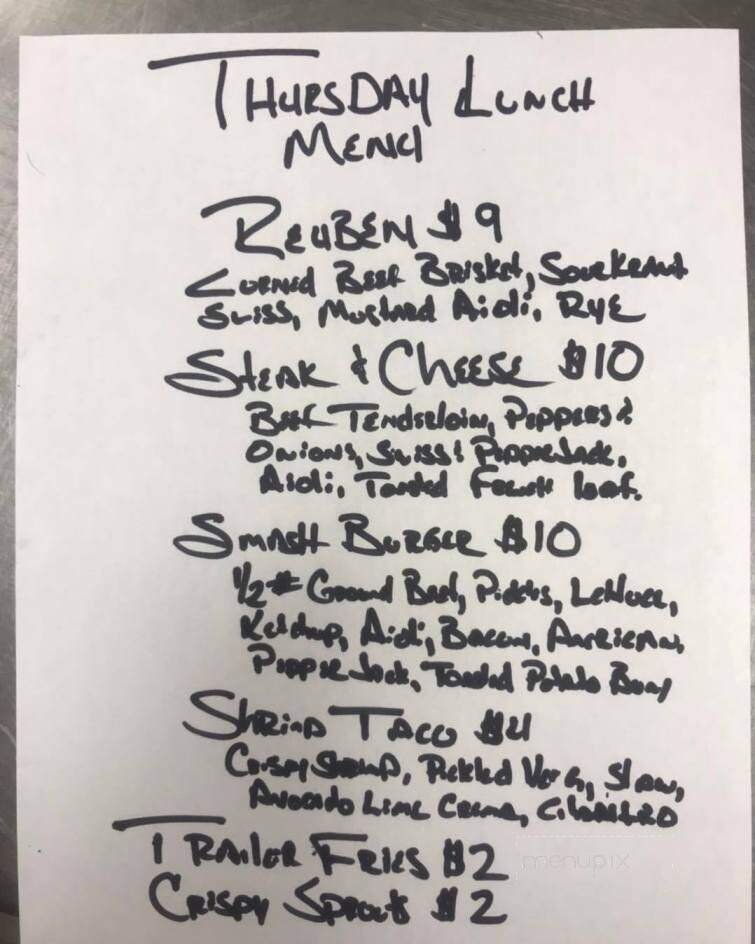 THURSDAY LUNCH
MENU
REUBEN $9
CORNED BEEF BRISKET, SOURKRAUT
SWISS, MUSTARD AIOLI, RYE
STEAK & CHEESE $10
BEEF TENDERLOIN, PEPPERS &
ONIONS, SWISS & PEPPERJACK,
AIOLI, TOASTED FRENCH loaf.
SMASH BURGER $10
1/2 # GROUND BEEF, PICKLES, LETTUCE,
KETCHUP, AIOLI, BACON, AMERICAN,
PEPPER JACK, TOASTED POTATO BUN
SHRIMP TACO $4
CRISPY SHRIMP, PICKLED VEG, SLAW,
AVOCADO LIME CREMA, CILANTRO
TRAILER FRIES $2
CRISPY SPROUTS $2
menupix